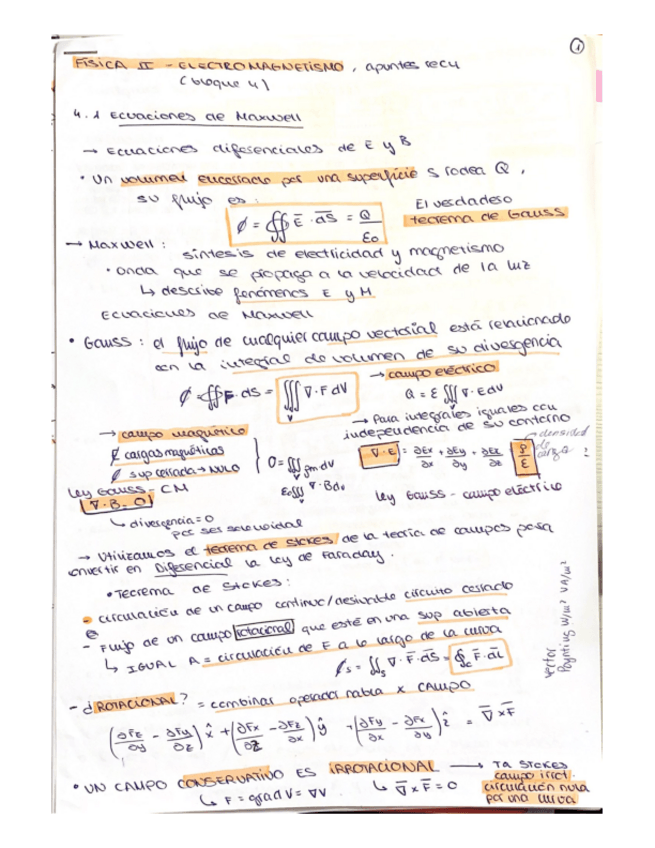 1
FÍSICA II - ELECTROMAGNETISMO, apuntes recu
(bloque 4)
4.1 Ecuaciones de Maxwell
→ Ecuaciones diferenciales de E y B
• Un volumen encerrado por una superficie S rodea Q,
su flujo es:
ϕ = ∯ E̅ · dS̅ = Q/ε₀
El verdadero
teorema de Gauss
→ Maxwell:
síntesis de electricidad y magnetismo
• onda que se propaga a la velocidad de la luz
↳ describe fenómenos E y M
Ecuaciones de Maxwell
• Gauss: el flujo de cualquier campo vectorial está relacionado
con la integral de volumen de su divergencia
ϕ = ∯ F · dS = ∭ᵥ ∇ · F dV
→ campo eléctrico
Q = ε ∭ᵥ ∇ · E dV
→ Para integrales iguales con
independencia de su contorno
∇ · E = ∂Ex/∂x + ∂Ey/∂y + ∂Ez/∂z ρ/ε ?
densidad
de
carga
Ley Gauss - campo eléctrico
→ campo magnético
∄ cargas magnéticas
∄ sup cerrada → NULO
0 = ∭ ρm dV
∭ᵥ ∇ · B dv
Ley Gauss - CM
∇ · B = 0
↳ divergencia = 0
por ser solenoidal
→ Utilizamos el teorema de Stokes de la teoría de campos para
convertir en Diferencial la Ley de Faraday.
• Teorema de Stokes:
- circulación de un campo continuo/derivable circuito cerrado
e
- Flujo de un campo rotacional que esté en una sup abierta
↳ IGUAL A = circulación de F a lo largo de la curva
ϕs = ∬s ∇ · F̅ · dS̅ = ∮c F̅ · dL̅
vector
Poynting W/m² VA/m²
- ¿ROTACIONAL? = combinar operador nabla x CAMPO
(∂Fz/∂y - ∂Fy/∂z) x̂ + (∂Fx/∂z - ∂Fz/∂x) ŷ + (∂Fy/∂x - ∂Fx/∂y) ẑ = ∇̅ x F̅
• UN CAMPO CONSERVATIVO ES IRROTACIONAL → Ta Stokes
↳ F = grad V = ∇V ↳ ∇̅ x F̅ = 0
campo irrot.
circulación nula
por una curva